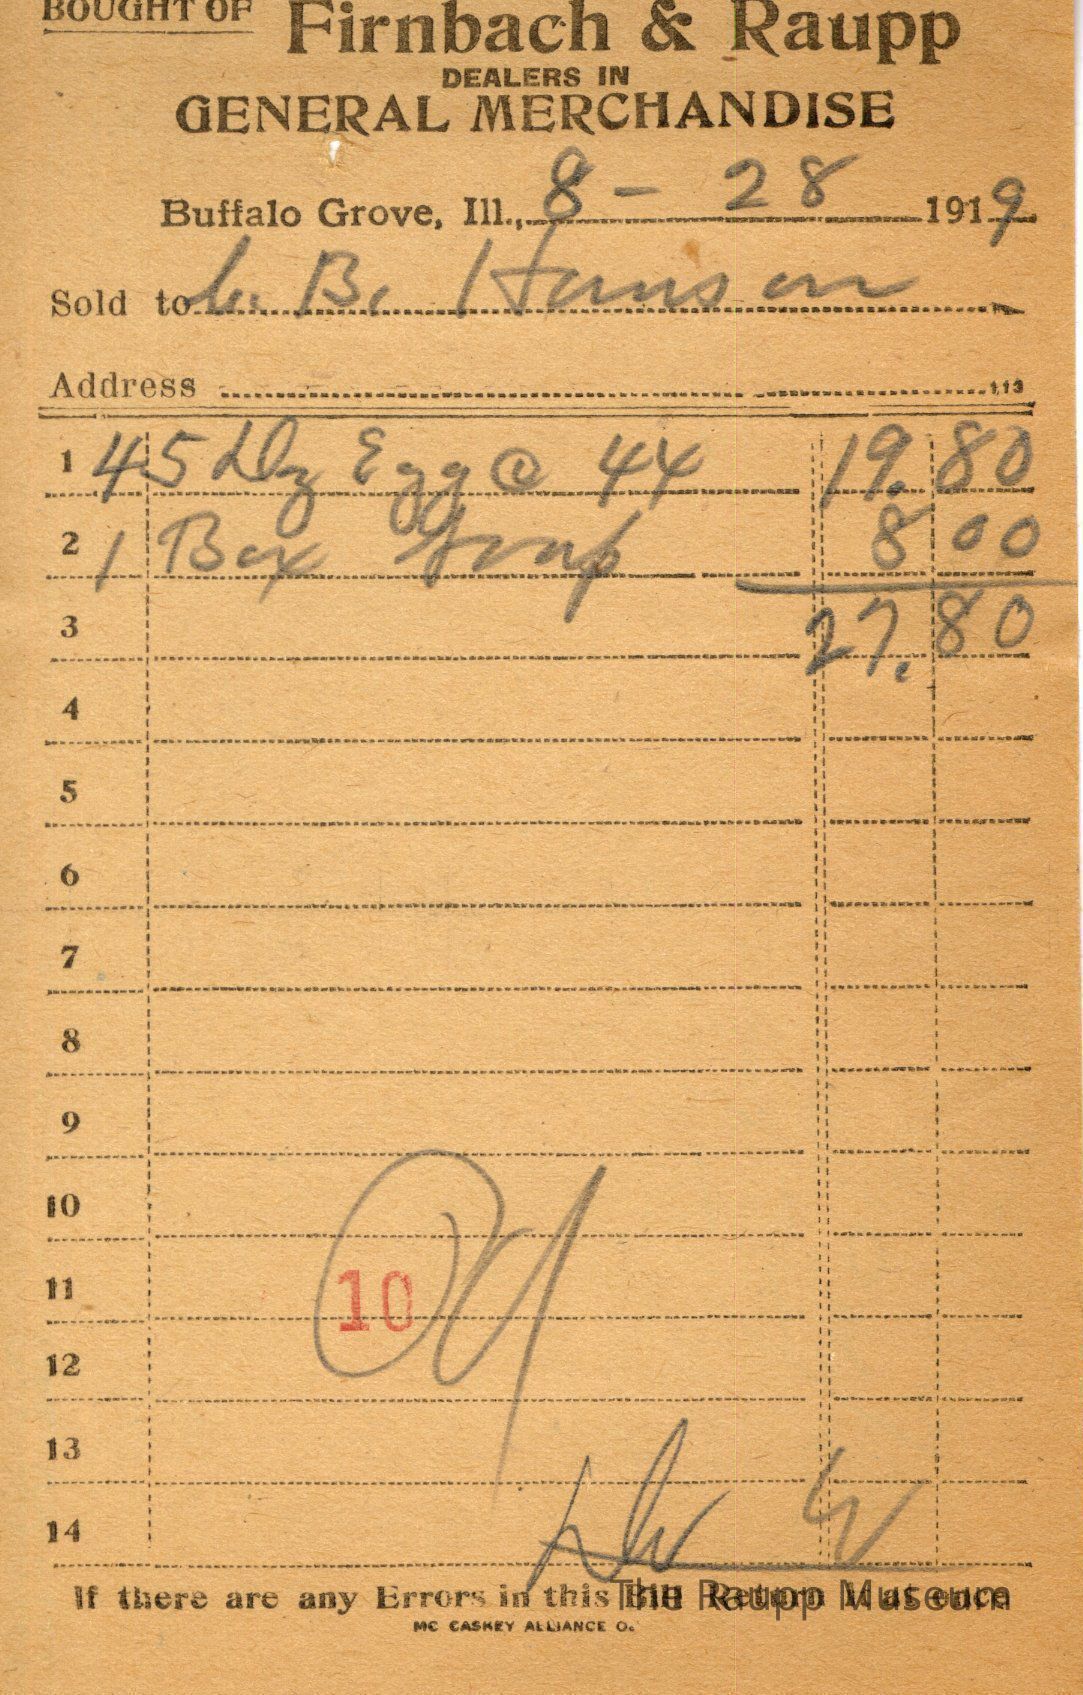 BOUGHT OF Firnbach & Raupp
DEALERS IN
GENERAL MERCHANDISE
Buffalo Grove, Ill., 8 - 28 1919
Sold to B. Hanson
Address
113
1 45 Dz Egg @ 44 19.80
2 1 Box Soap 8 00
3 27.80
4
5
6
7
8
9
10
11
10
12
13
14
If there are any Errors in this Bill Return it at once
The Raupp Museum
MC CASKEY ALLIANCE O.